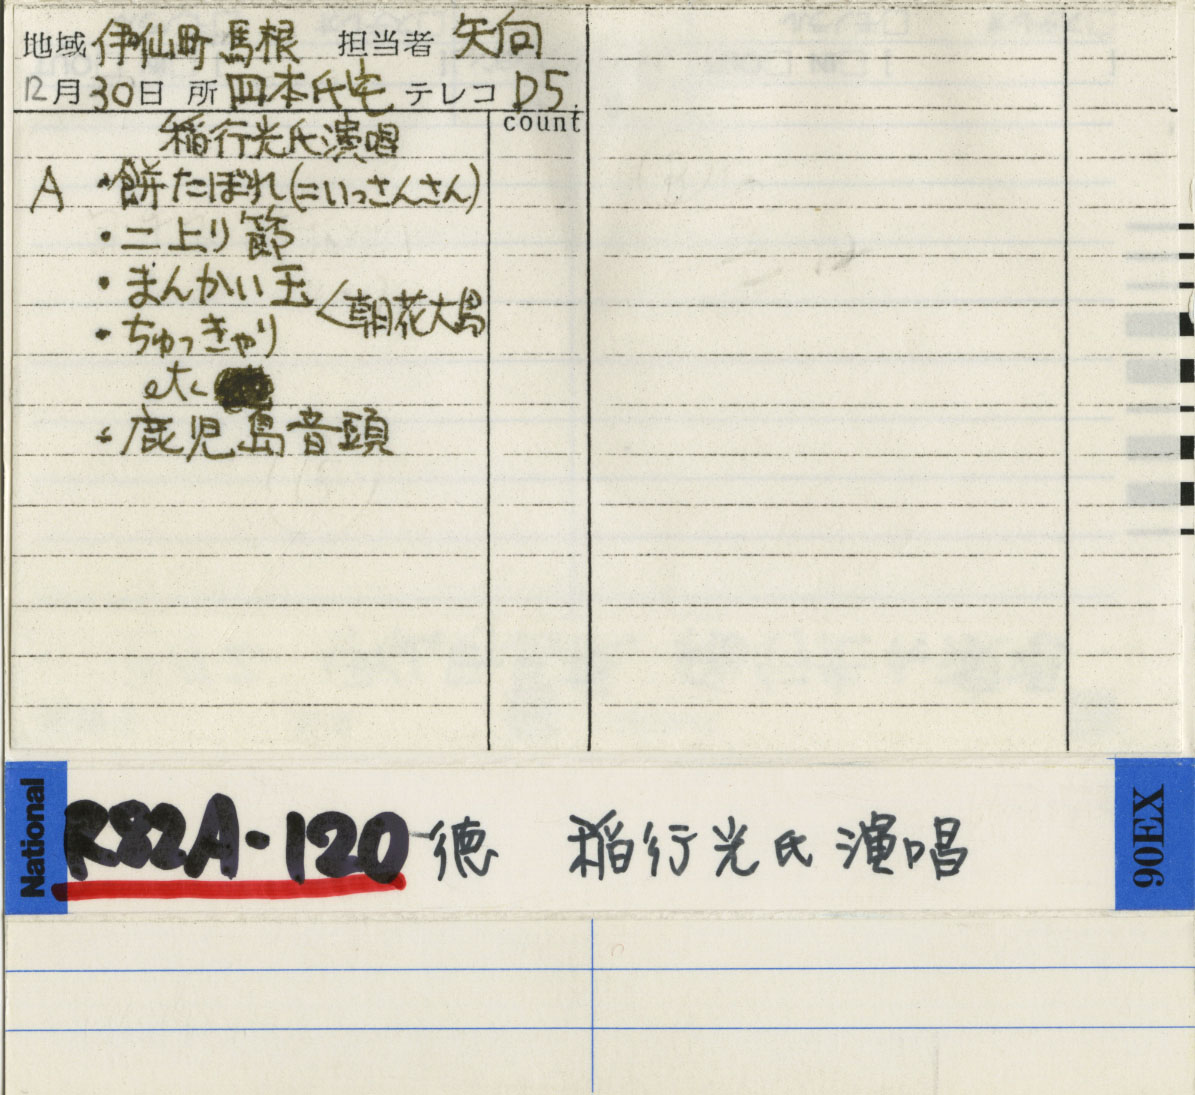 地域 伊仙町 馬根 担当者 矢向
12月30日 所 四本氏宅 テレコ D5
count
稲行光氏演唱
A ・餅たぼれ(=いっさんさん)
・二上り節
・まんかい玉
<朝花大島
・ちゅっきゃり
etc
・鹿児島音頭
National R82A-120 徳 稲行光氏演唱 90EX